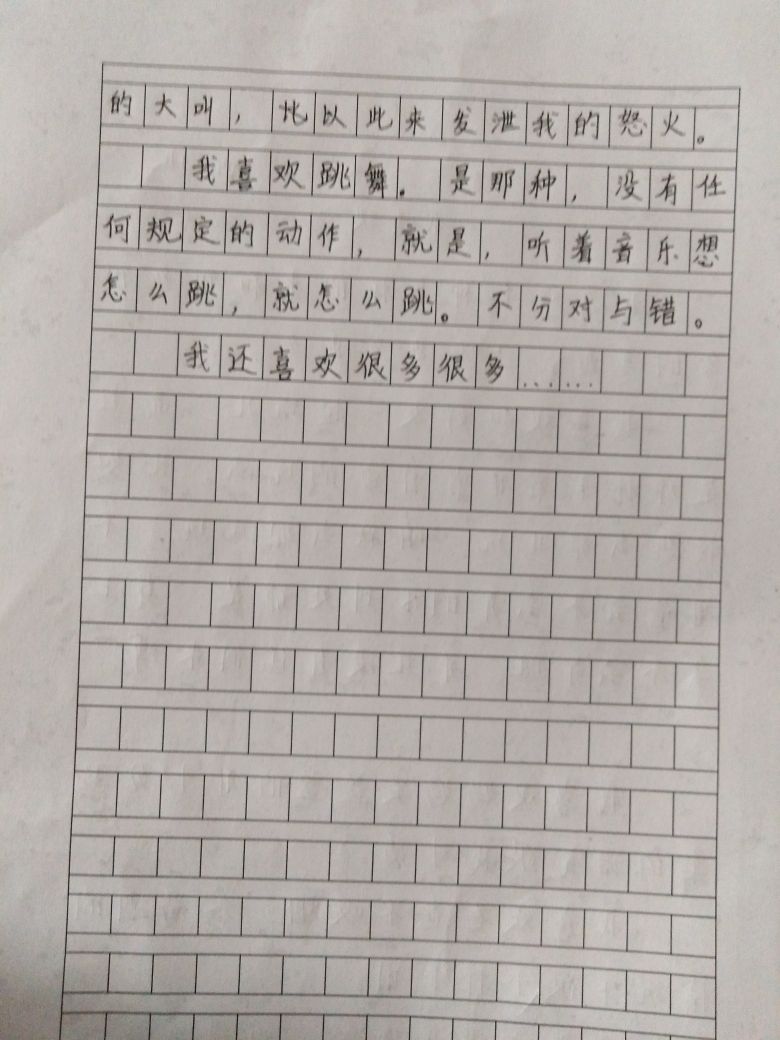 的大叫，以此来发泄我的怒火。
我喜欢跳舞。是那种，没有任
何规定的动作，就是，听着音乐想
怎么跳，就怎么跳。不分对与错。
我还喜欢很多很多……